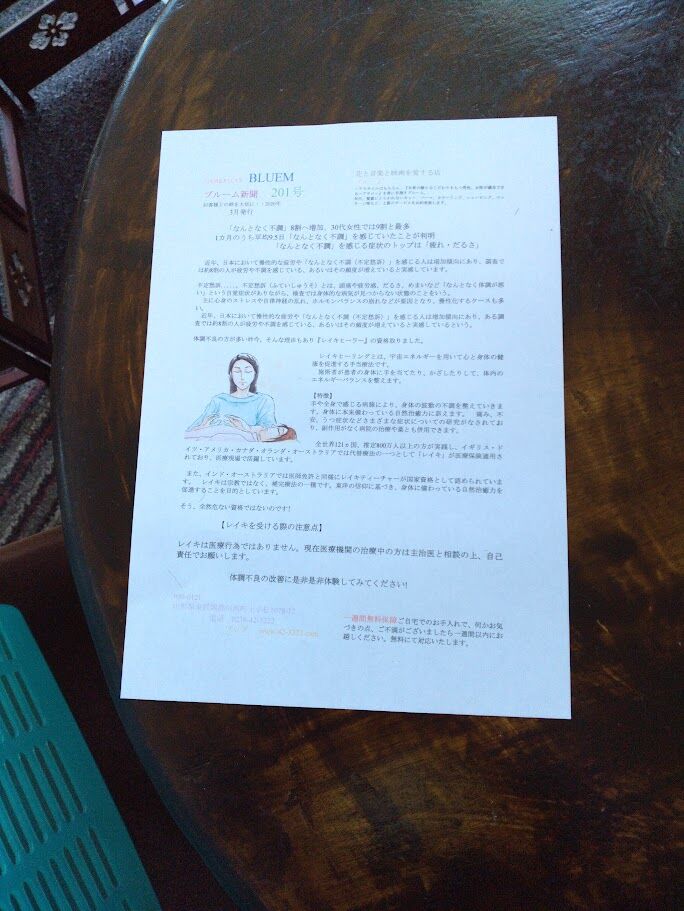 BLUEM
ブルーム新聞 201号
お客様との絆を大切に!!2026年
3月発行
花と音楽と映画を愛する店
「なんとなく不調」8割へ増加、30代女性では9割と最多
1カ月のうち平均9.5日「なんとなく不調」を感じていたことが判明
「なんとなく不調」を感じる症状のトップは「疲れ・だるさ」
近年、日本において慢性的な疲労や「なんとなく不調(不定愁訴)」を感じる人は増加傾向にあり、調査では約8割の人が疲労や不調を感じている、あるいはその頻度が増えていると実感しています。
不定愁訴......、不定愁訴(ふていしゅうそ)とは、頭痛や疲労感、だるさ、めまいなど「なんとなく体調が悪い」という自覚症状がありながら、検査では身体的な病気が見つからない状態のことをいう。
主に心身のストレスや自律神経の乱れ、ホルモンバランスの崩れなどが要因となり、慢性化するケースも多い。
近年、日本において慢性的な疲労や「なんとなく不調(不定愁訴)」を感じる人は増加傾向にあり、ある調査では約8割の人が疲労や不調を感じている、あるいはその頻度が増えていると実感しているという。
体調不良の方が多い昨今、そんな理由もあり『レイキヒーラー』の資格取りました。
レイキヒーリングとは、宇宙エネルギーを用いて心と身体の健康を促進する手当療法です。
施術者が患者の身体に手を当てたり、かざしたりして、体内のエネルギーバランスを整えます。
【特徴】
手や全身で感じる病腺により、身体の波動の不調を整えていきます。身体に本来備わっている自然治癒力に訴えます。 痛み、不安、うつ症状などさまざまな症状についての研究がなされており、副作用がなく病院の治療や薬とも併用できます。
全世界121ヵ国、推定800万人以上の方が実践し、イギリス・ドイツ・アメリカ・カナダ・オランダ・オーストラリアでは代替療法の一つとして「レイキ」が医療保険適用されており、医療現場で活躍しています。
また、インド・オーストラリアでは医師免許と同様にレイキティーチャーが国家資格として認められています。 レイキは宗教ではなく、補完療法の一種です。東洋の信仰に基づき、身体に備わっている自然治癒力を促進することを目的としています。
そう、全然危ない資格ではないのです!
【レイキを受ける際の注意点】
レイキは医療行為ではありません。現在医療機関の治療中の方は主治医と相談の上、自己責任でお願いします。
体調不良の改善に是非是非体験してみてください!
999-0121
電話 0238-42-3323
一週間無料保障 ご自宅でのお手入れで、何かお気づきの点、ご不満がございましたら一週間以内にお越しください。無料にて対応いたします。